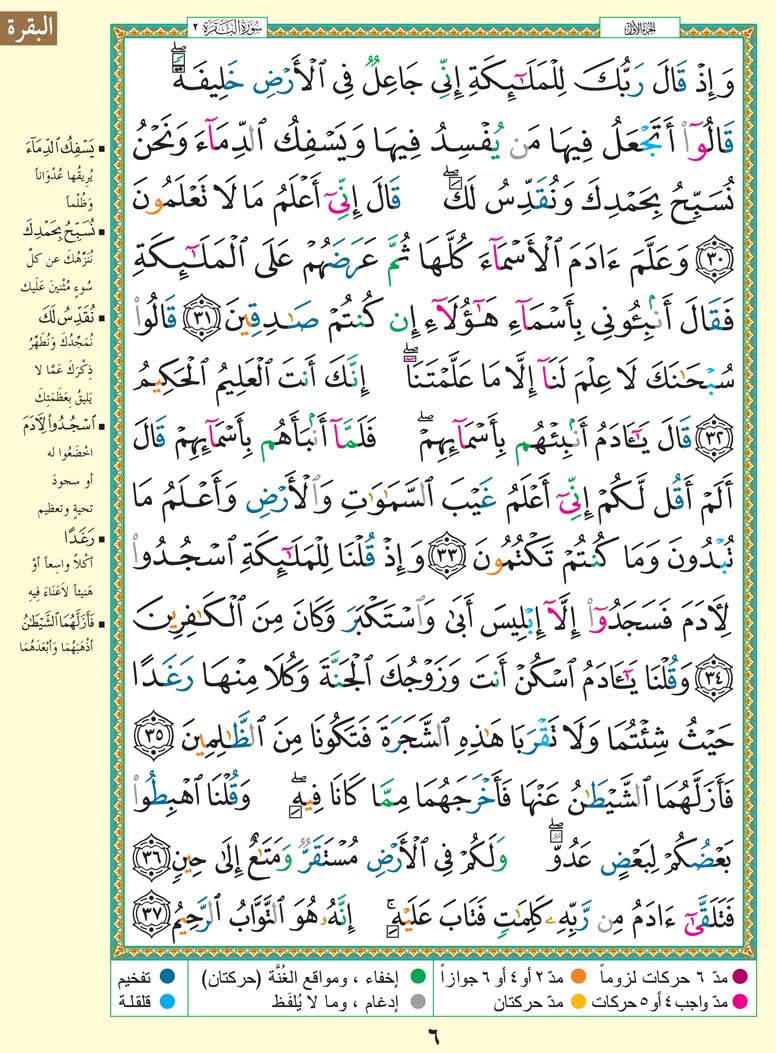 البقرة
سُورَةُ البَقَرَة ٢
الجزء الأول
وَإِذۡ قَالَ رَبُّكَ لِلۡمَلَـٰٓئِكَةِ إِنِّي جَاعِلٌ فِي ٱلۡأَرۡضِ خَلِيفَةٗۖ
قَالُوٓاْ أَتَجۡعَلُ فِيهَا مَن يُفۡسِدُ فِيهَا وَيَسۡفِكُ ٱلدِّمَآءَ وَنَحۡنُ
نُسَبِّحُ بِحَمۡدِكَ وَنُقَدِّسُ لَكَۖ قَالَ إِنِّيٓ أَعۡلَمُ مَا لَا تَعۡلَمُونَ
٣٠ وَعَلَّمَ ءَادَمَ ٱلۡأَسۡمَآءَ كُلَّهَا ثُمَّ عَرَضَهُمۡ عَلَى ٱلۡمَلَـٰٓئِكَةِ
فَقَالَ أَنۢبِـُٔونِي بِأَسۡمَآءِ هَـٰٓؤُلَآءِ إِن كُنتُمۡ صَـٰدِقِينَ ٣١ قَالُواْ
سُبۡحَـٰنَكَ لَا عِلۡمَ لَنَآ إِلَّا مَا عَلَّمۡتَنَآۖ إِنَّكَ أَنتَ ٱلۡعَلِيمُ ٱلۡحَكِيمُ
٣٢ قَالَ يَـٰٓـَٔادَمُ أَنۢبِئۡهُم بِأَسۡمَآئِهِمۡۖ فَلَمَّآ أَنۢبَأَهُم بِأَسۡمَآئِهِمۡ قَالَ
أَلَمۡ أَقُل لَّكُمۡ إِنِّيٓ أَعۡلَمُ غَيۡبَ ٱلسَّمَـٰوَٰتِ وَٱلۡأَرۡضِ وَأَعۡلَمُ مَا
تُبۡدُونَ وَمَا كُنتُمۡ تَكۡتُمُونَ ٣٣ وَإِذۡ قُلۡنَا لِلۡمَلَـٰٓئِكَةِ ٱسۡجُدُواْ
لِـَٔادَمَ فَسَجَدُوٓاْ إِلَّآ إِبۡلِيسَ أَبَىٰ وَٱسۡتَكۡبَرَ وَكَانَ مِنَ ٱلۡكَـٰفِرِينَ
٣٤ وَقُلۡنَا يَـٰٓـَٔادَمُ ٱسۡكُنۡ أَنتَ وَزَوۡجُكَ ٱلۡجَنَّةَ وَكُلَا مِنۡهَا رَغَدًا
حَيۡثُ شِئۡتُمَا وَلَا تَقۡرَبَا هَـٰذِهِ ٱلشَّجَرَةَ فَتَكُونَا مِنَ ٱلظَّـٰلِمِينَ ٣٥
فَأَزَلَّهُمَا ٱلشَّيۡطَـٰنُ عَنۡهَا فَأَخۡرَجَهُمَا مِمَّا كَانَا فِيهِۖ وَقُلۡنَا ٱهۡبِطُواْ
بَعۡضُكُمۡ لِبَعۡضٍ عَدُوّٞۖ وَلَكُمۡ فِي ٱلۡأَرۡضِ مُسۡتَقَرّٞ وَمَتَـٰعٌ إِلَىٰ حِينٖ ٣٦
فَتَلَقَّىٰٓ ءَادَمُ مِن رَّبِّهِۦ كَلِمَـٰتٖ فَتَابَ عَلَيۡهِۚ إِنَّهُۥ هُوَ ٱلتَّوَّابُ ٱلرَّحِيمُ ٣٧
▪ يَسۡفِكُ ٱلدِّمَآءَ
يُرِيقُها عُدْوَاناً
وَظُلْماً
▪ نُسَبِّحُ بِحَمۡدِكَ
نُنَزِّهُكَ عن كلِّ
سُوءٍ مُثْنِينَ عَلَيك
▪ نُقَدِّسُ لَكَ
نُمَجِّدُكَ وَنُطَهِّرُ
ذِكْرَكَ عَمَّا لا
يَلِيقُ بِعَظَمَتِكَ
▪ ٱسۡجُدُواْ لِـَٔادَمَ
اخْضَعُوا له
أو سجودَ
تحيةٍ وتعظيم
▪ رَغَدًا
أكْلاً واسِعاً أوْ
هَنيئاً لاَ عَنَاءَ فيهِ
▪ فَأَزَلَّهُمَا ٱلشَّيۡطَـٰنُ
أذْهَبَهُمَا وَأبْعَدَهُمَا
مدّ ٦ حركات لزوماً
مدّ ٢ أو ٤ أو ٦ جوازاً
إخفاء ، ومواقع الغُنَّة (حركتان)
تفخيم
مدّ واجب ٤ أو ٥ حركات
مدّ حركتان
إدغام ، وما لا يُلفَظ
قلقلة
٦